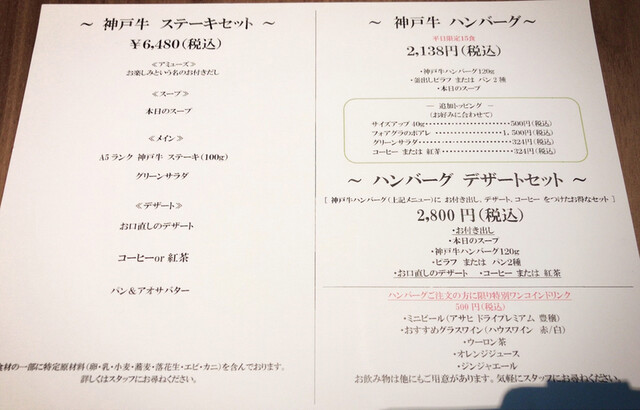 ～ 神戸牛 ステーキセット ～
￥6,480(税込)
≪アミューズ≫
お楽しみという名のお付きだし
≪スープ≫
本日のスープ
≪メイン≫
A5ランク 神戸牛 ステーキ(100g)
グリーンサラダ
≪デザート≫
お口直しのデザート
コーヒーor 紅茶
パン＆アオサバター
食材の一部に特定原材料(卵・乳・小麦・蕎麦・落花生・エビ・カニ)を含んでおります。
詳しくはスタッフにお尋ねください。
～ 神戸牛 ハンバーグ～
平日限定15食
2,138円(税込)
・神戸牛ハンバーグ120g
・釜出しピラフ または パン2種
・本日のスープ
― 追加トッピング ―
(お好みに合わせて)
サイズアップ 40g・・・・・・・・・・・・・・・・500円(税込)
フォアグラのポアレ・・・・・・・・・・・・1,500円(税込)
グリーンサラダ・・・・・・・・・・・・・・・・・324円(税込)
コーヒー または 紅茶・・・・・・・・・・・・324円(税込)
～ ハンバーグ デザートセット ～
[ 神戸牛ハンバーグ(上記メニュー)に お付き出し、デザート、コーヒー をつけたお得なセット ]
2,800 円(税込)
・お付き出し
・本日のスープ
・神戸牛ハンバーグ120g
・ピラフ または パン2種
・お口直しのデザート ・コーヒー または 紅茶
ハンバーグご注文の方に限り特別ワンコインドリンク
500 円(税込)
・ミニビール(アサヒ ドライプレミアム 豊穣)
・おすすめグラスワイン(ハウスワイン 赤/白)
・ウーロン茶
・オレンジジュース
・ジンジャエール
お飲み物は他にもご用意があります。気軽にスタッフにお尋ねください。